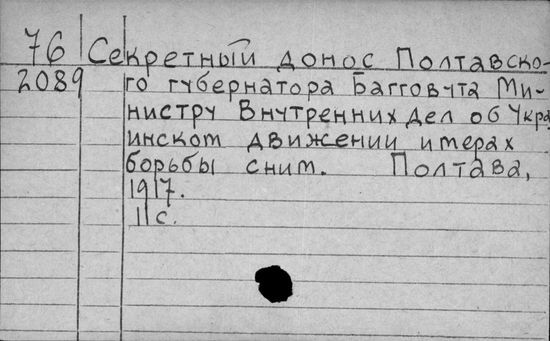 76 Секретный донос Полтавско-
2089 го губернатора Багговута Ми-
нистру Внутренних дел об Укра
инском движении и мерах
борьбы с ним. Полтава,
1917.
11 с.